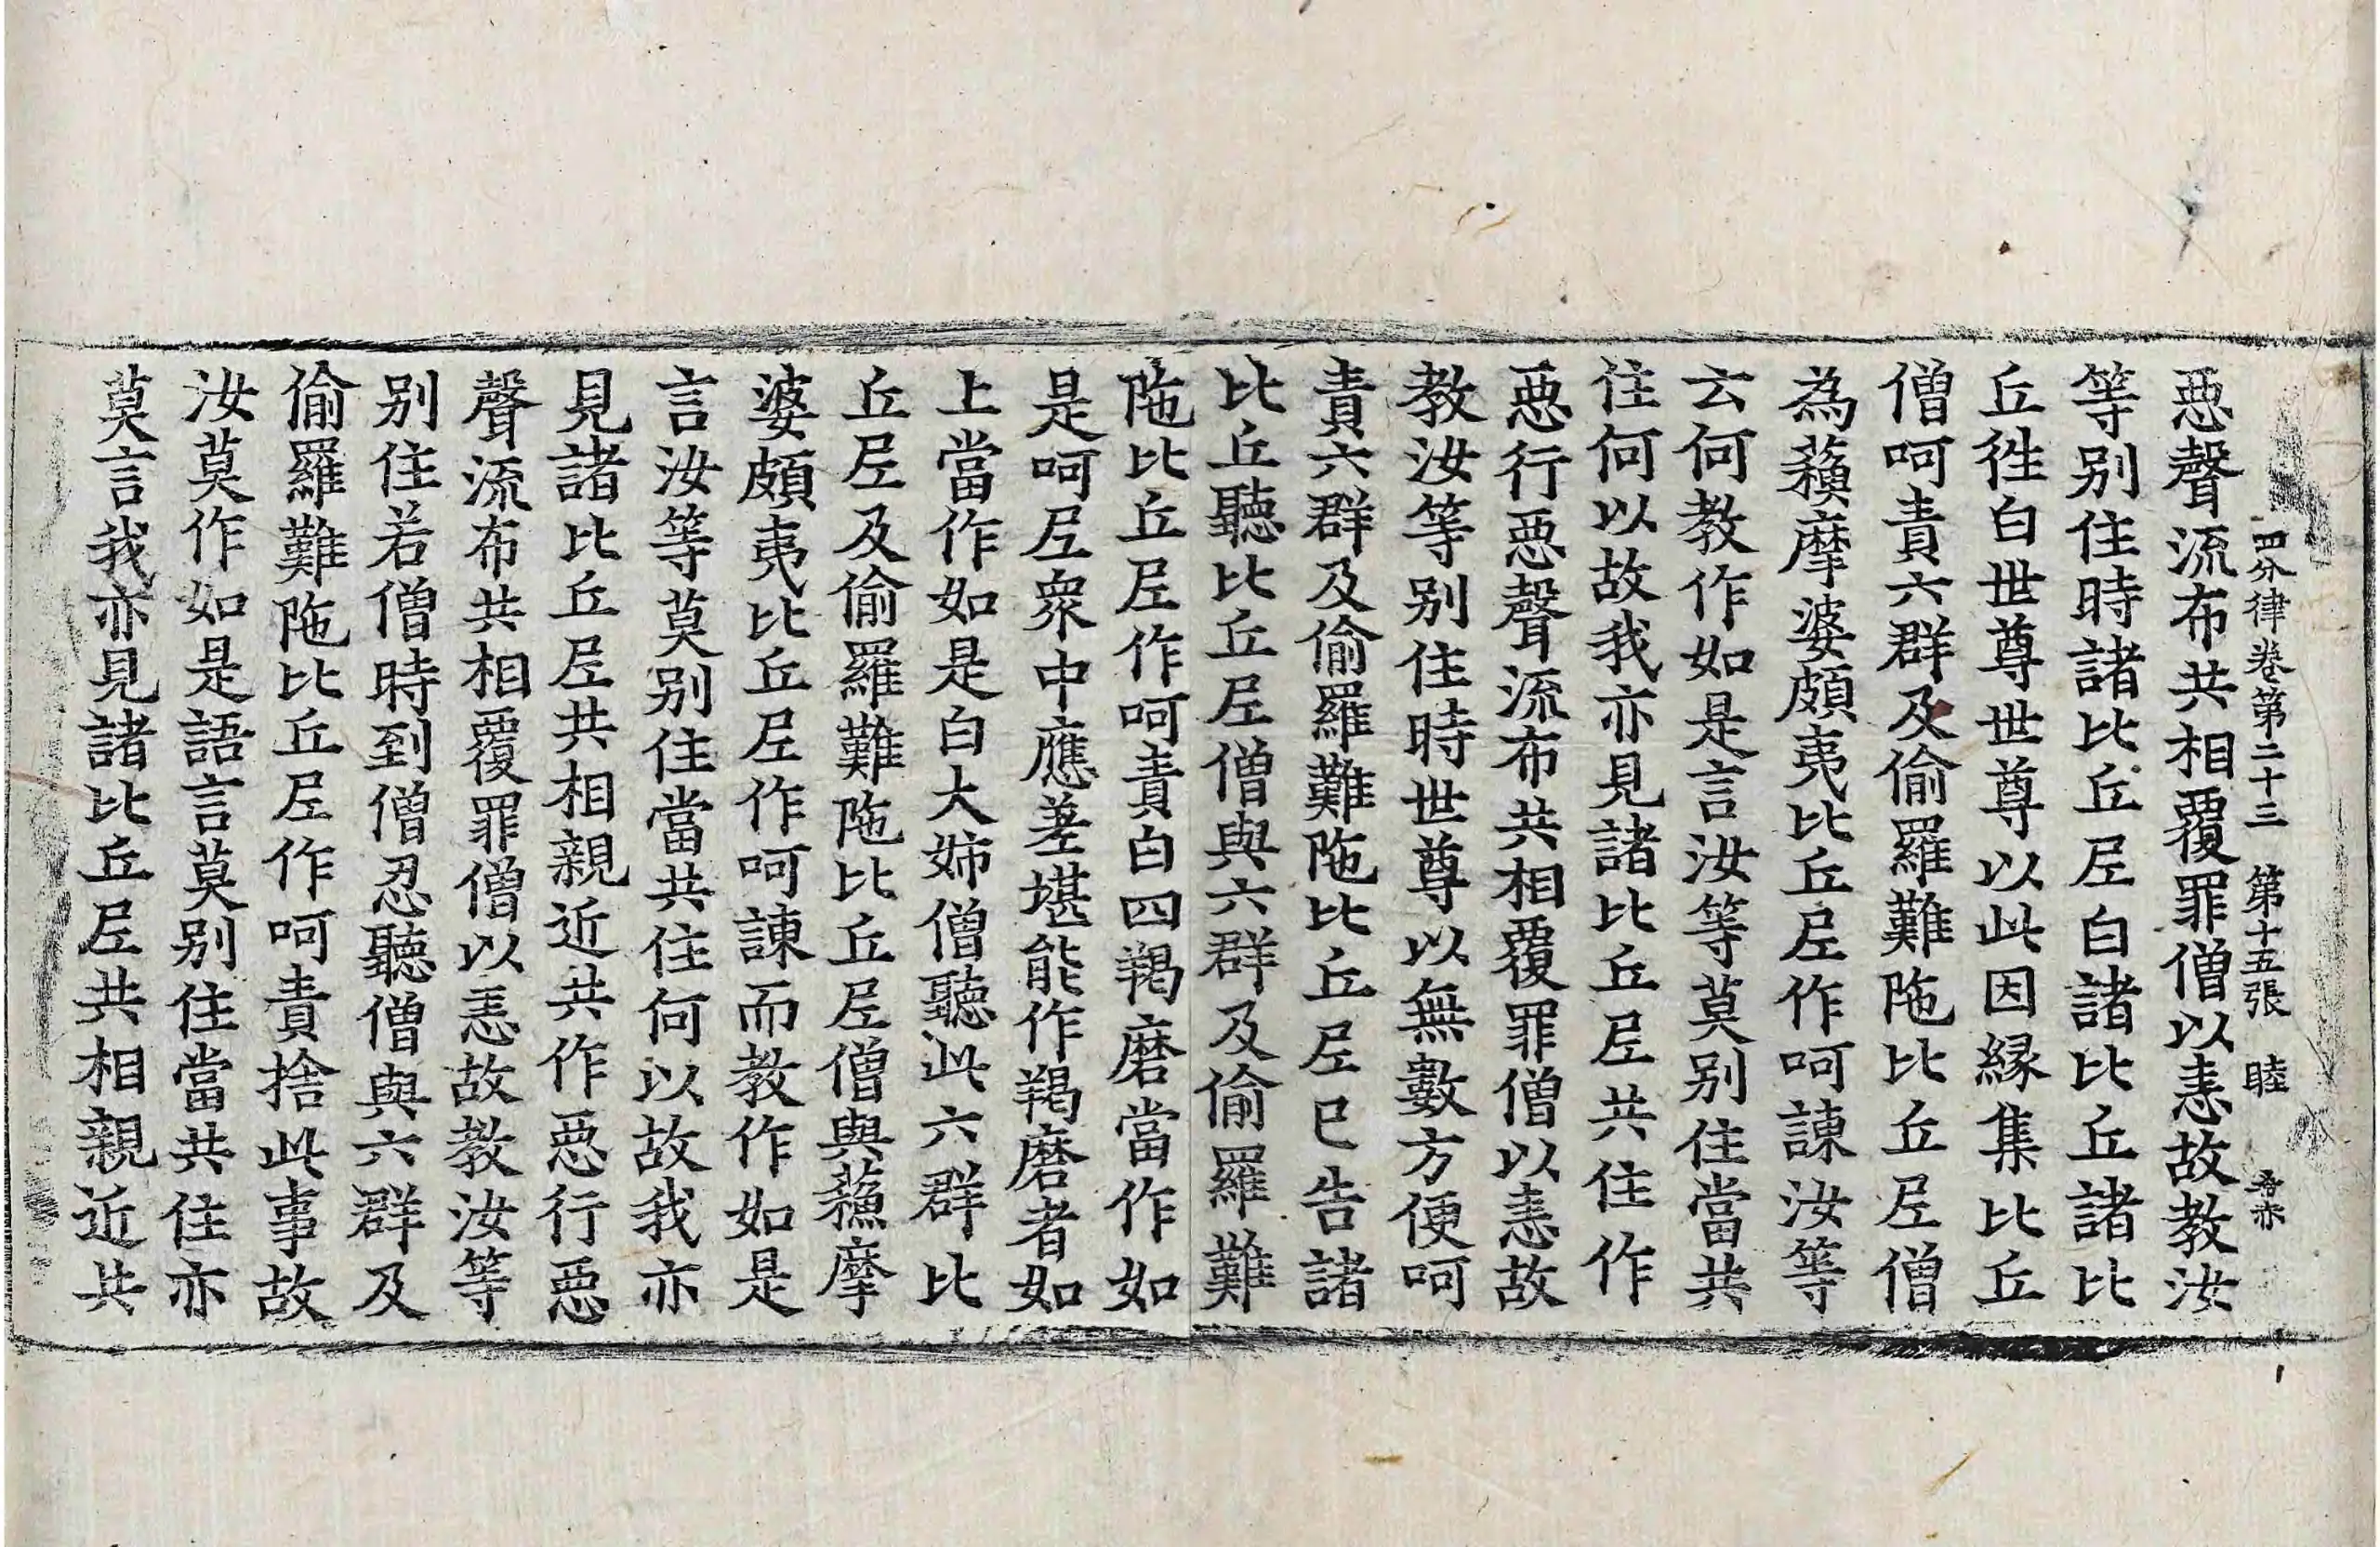 四分律卷第二十三　第十五張　睦
惡聲流布共相覆罪僧以恚故教汝
等別住時諸比丘尼白諸比丘諸比
丘徃白世尊世尊以此因縁集比丘
僧呵責六群及偷羅難陁比丘尼僧
為蘓摩婆頗夷比丘尼作呵諫汝等
云何教作如是言汝等莫別住當共
住何以故我亦見諸比丘尼共住作
惡行惡聲流布共相覆罪僧以恚故
教汝等別住時世尊以無數方便呵
責六群及偷羅難陁比丘尼已告諸
比丘聽比丘尼僧與六群及偷羅難
陁比丘尼作呵責白四羯磨當作如
是呵尼衆中應差堪能作羯磨者如
上當作如是白大姊僧聽此六群比
丘尼及偷羅難陁比丘尼僧與蘓摩
婆頗夷比丘尼作呵諫而教作如是
言汝等莫別住當共住何以故我亦
見諸比丘尼共相親近共作惡行惡
聲流布共相覆罪僧以恚故教汝等
別住若僧時到僧忍聽僧與六群及
偷羅難陁比丘尼作呵責捨此事故
汝莫作如是語言莫別住當共住亦
莫言我亦見諸比丘尼共相親近共